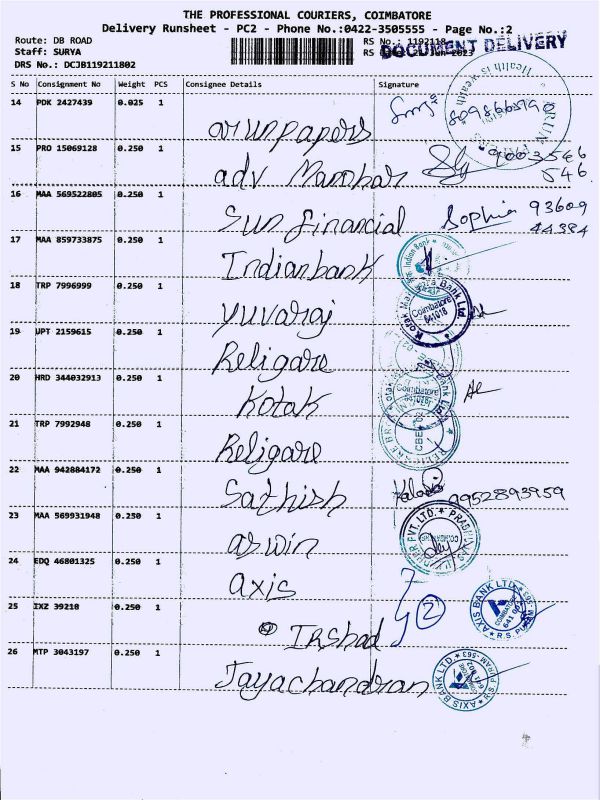 THE PROFESSIONAL COURIERS, COIMBATORE
Delivery Runsheet - PC2 - Phone No.:0422-3505555 - Page No.:2
Route: DB ROAD
RS No.: 1192118
DOCUMENT DELIVERY
Staff: SURYA
DRS No.: DCJB119211802
S No Consignment No Weight PCS Consignee Details Signature
14 PDK 2427439 0.025 1
arunpapers
15 PRO 15069128 0.250 1
adv Manohar
16 MAA 569522805 0.250 1
Sun financial Sophia 93609
44384
17 MAA 859733875 0.250 1
Indianbank
18 TRP 7996999 0.250 1
Yuvaraj
Kotak Bank Ltd
Coimbatore
641018
19 UPT 2159615 0.250 1
Religare
20 HRD 344032913 0.250 1
Kotak
21 TRP 7992948 0.250 1
Religare
22 MAA 942884172 0.250 1
Sathish 9952893959
23 MAA 569931948 0.250 1
aswin
PVT. LTD.
24 EDQ 46801325 0.250 1
axis
25 IXZ 39218 0.250 1
Irshad 2
AXIS BANK LTD
R.S. PURAM
26 MTP 3043197 0.250 1
Jayachandran
AXIS BANK LTD